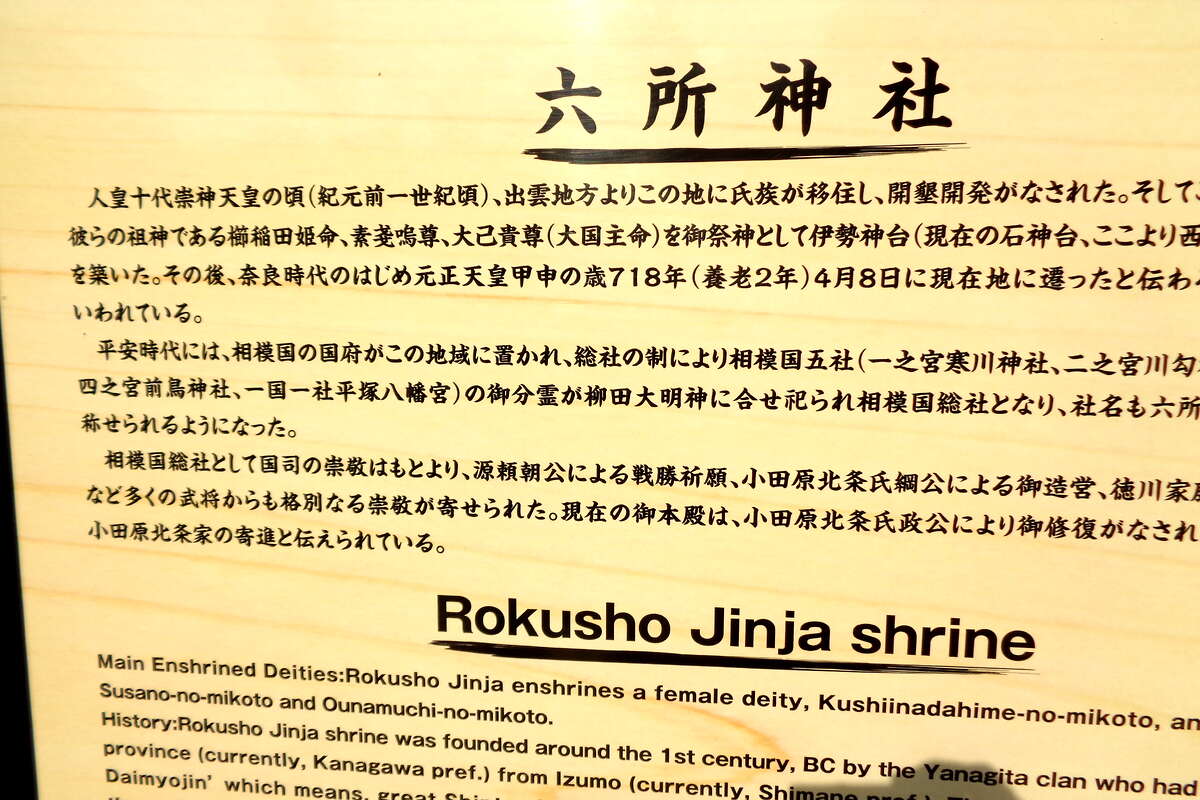 六所神社
人皇十代崇神天皇の頃(紀元前一世紀頃)、出雲地方よりこの地に氏族が移住し、開墾開発がなされた。そして
彼らの祖神である櫛稲田姫命、素戔嗚尊、大己貴尊(大国主命)を御祭神として伊勢神台(現在の石神台、ここより西
を築いた。その後、奈良時代のはじめ元正天皇甲申の歳718年(養老2年)4月8日に現在地に遷ったと伝わ
いわれている。
平安時代には、相模国の国府がこの地域に置かれ、総社の制により相模国五社(一之宮寒川神社、二之宮川勾
四之宮前鳥神社、一国一社平塚八幡宮)の御分霊が柳田大明神に合せ祀られ相模国総社となり、社名も六所
称せられるようになった。
相模国総社として国司の崇敬はもとより、源頼朝公による戦勝祈願、小田原北条氏綱公による御造営、徳川家
など多くの武将からも格別なる崇敬が寄せられた。現在の御本殿は、小田原北条氏政公により御修復がなされ
小田原北条家の寄進と伝えられている。
Rokusho Jinja shrine
Main Enshrined Deities:Rokusho Jinja enshrines a female deity, Kushiinadahime-no-mikoto, an
Susano-no-mikoto and Ounamuchi-no-mikoto.
History:Rokusho Jinja shrine was founded around the 1st century, BC by the Yanagita clan who had
province (currently, Kanagawa pref.) from Izumo (currently, Shimane pref.).
Daimyojin' which means, great